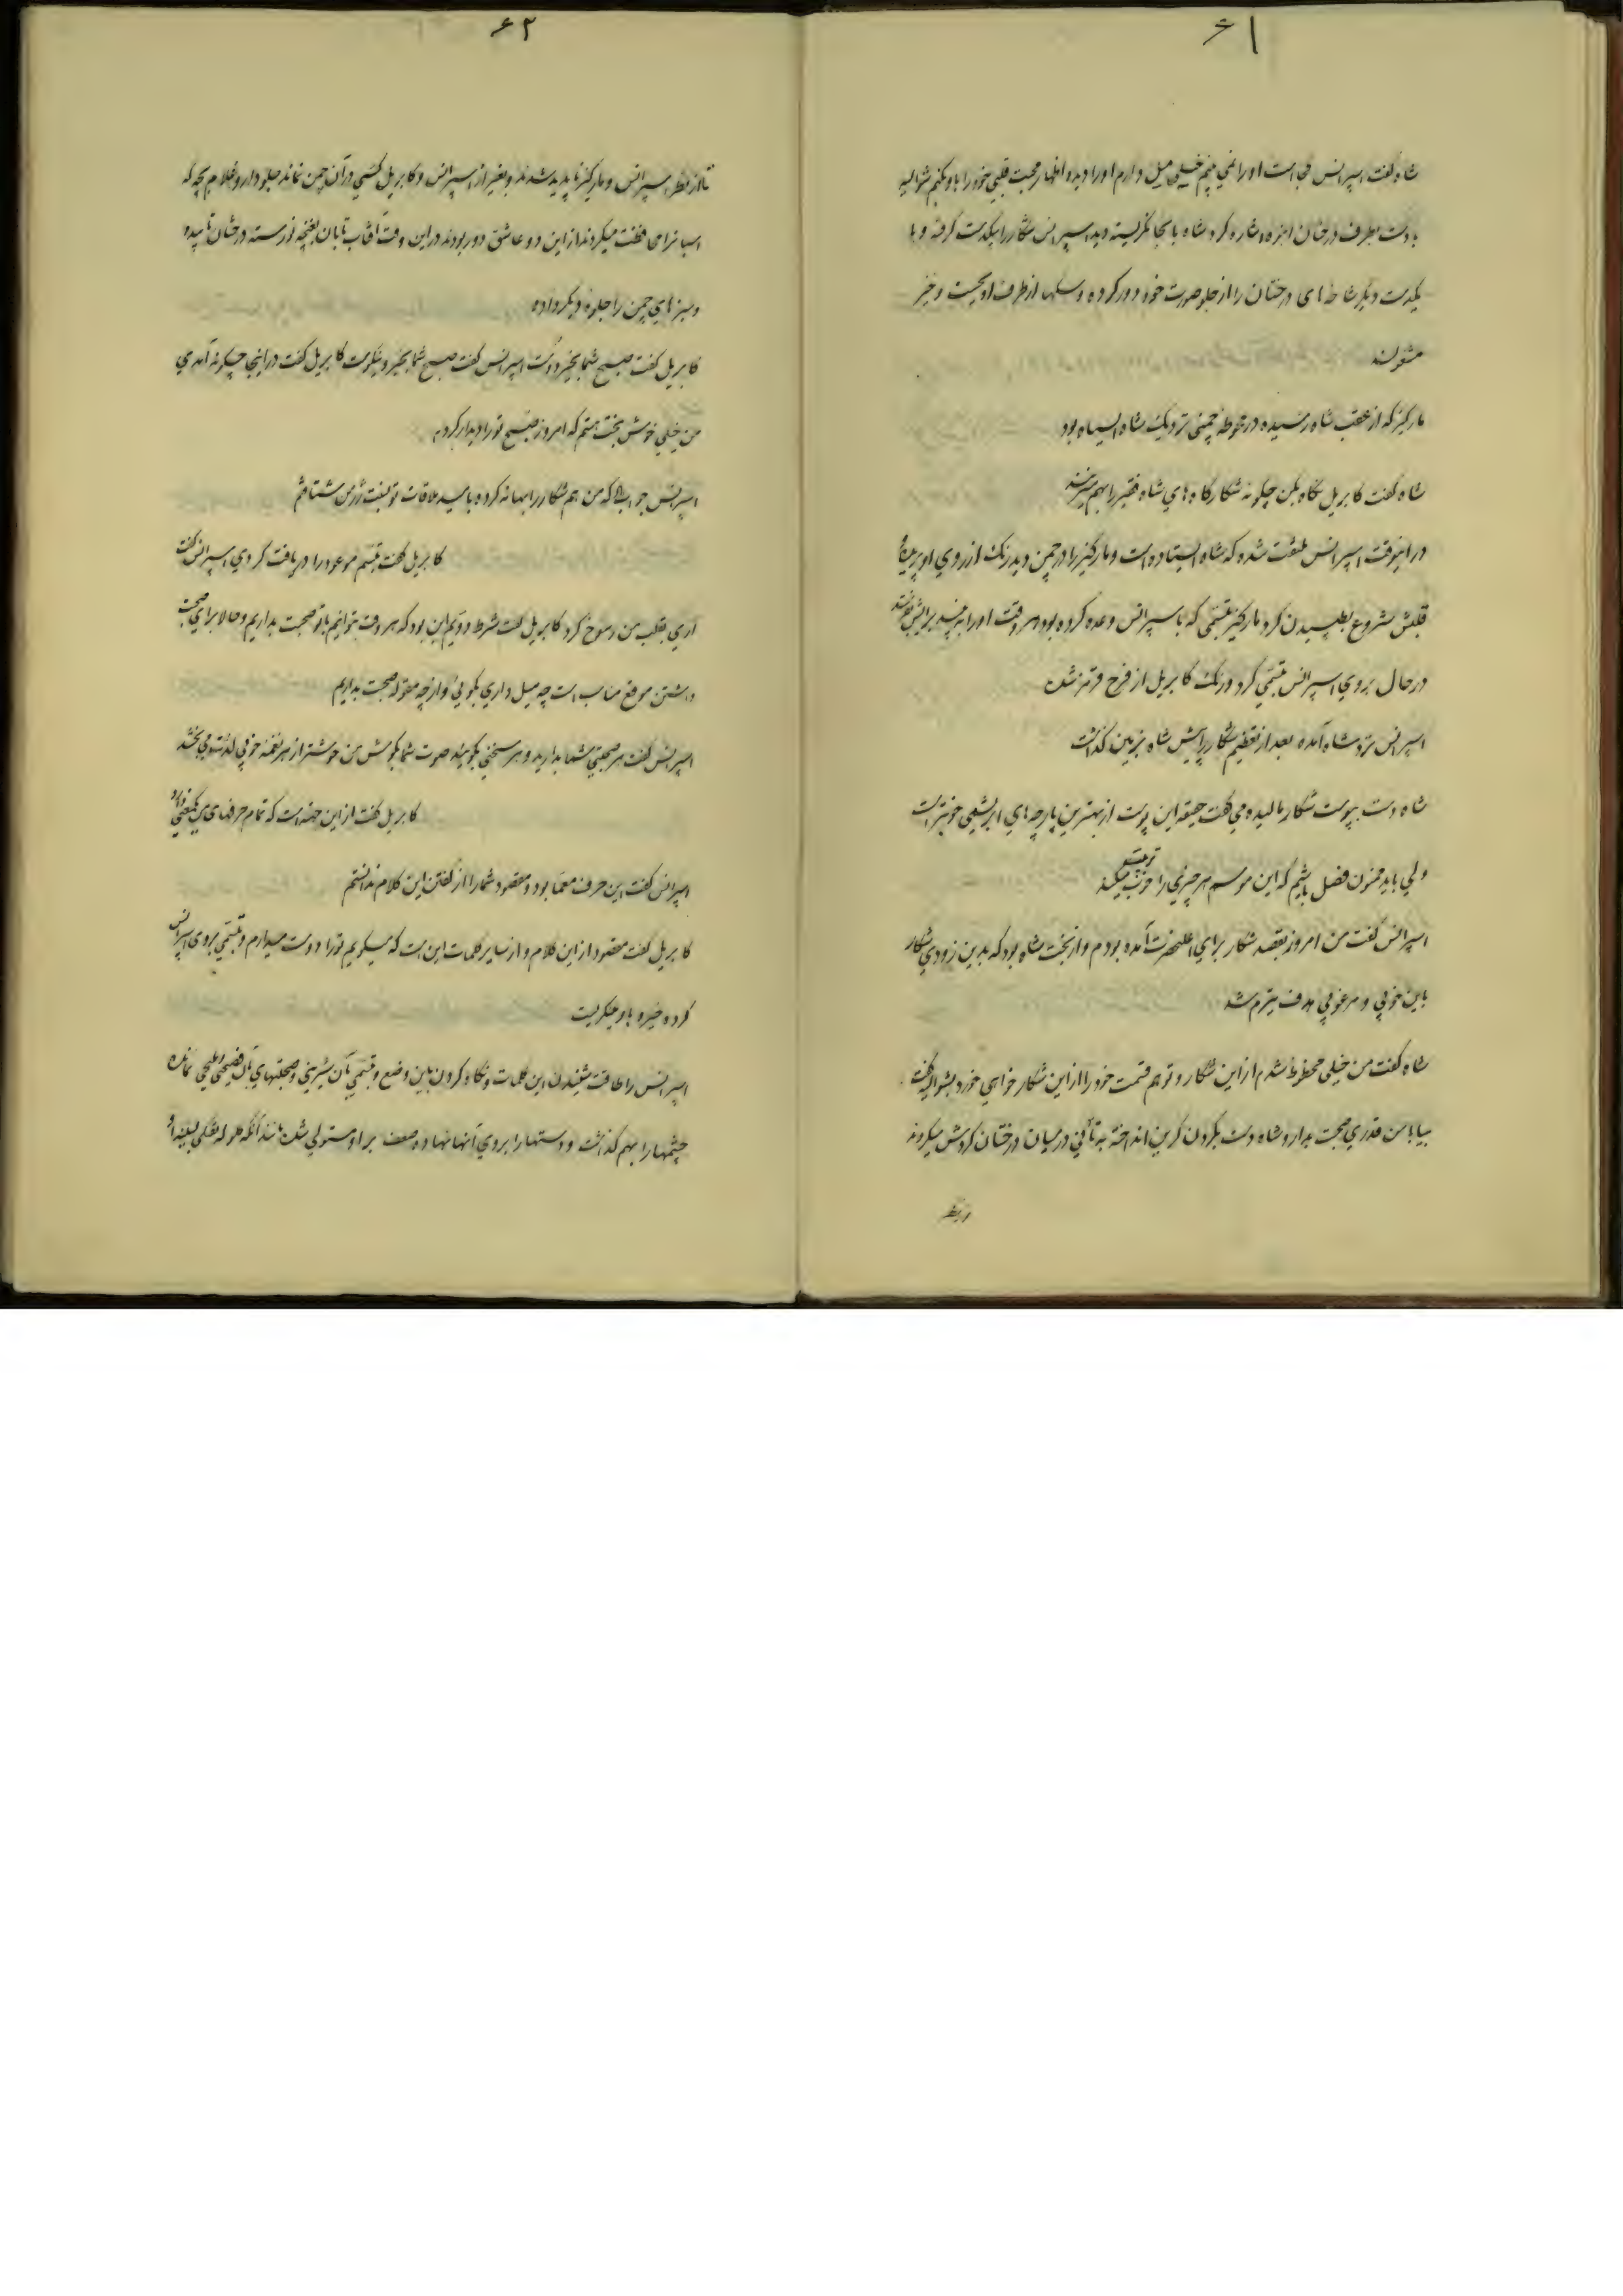 ۶۱
شاه گفت اسپرانس کجاست او را نمی بینم خیلی میل دارم او را دیده اظهار محبت قلبی خود را باو بکنم شوالیه
با دست بطرف درختان انبوه اشاره کرد شاه بانجا نگریسته دید اسپرانس شکار را بیکدست گرفته و با
یکدست دیگر شاخه های درختان را از جلو صورت خود دور کرده و سکها از طرف او بجست و خیز
مشغولند
مارکیز که از عقب شاه رسیده در محوطه چمنی نزدیک شاه ایستاده بود
شاه گفت کابریل نگاه بکن چگونه شکارگاه های شاه فقیر را بهم میزنند
در اینوقت اسپرانس ملتفت شده که شاه ایستاده است و مارکیز را در چمن دید رنگ از روی او پریده و
قلبش شروع بطپیدن کرد مارکیز تبسمی که باسپرانس وعده کرده بود هر وقت او را به بیند برایش بفرستد
در حال بروی اسپرانس تبسمی کرد و رنگ کابریل از فرح قرمز شد
اسپرانس نزد شاه آمده بعد از تعظیم شکار را پیش شاه بزمین گذاشت
شاه دست بپوست شکار مالیده می گفت حقیقة این پوست از بهترین پارچه های ابریشمی خوبتر است
ولی باید ممنون فصل باشیم که این موسم هر چیزی را خوب تربیت میکند
اسپرانس گفت من امروز بقصد شکار برای اعلیحضرت آمده بودم و از بخت شاه بود که بدین زودی شکار
باین خوبی و مرغوبی هدف تیرم شد
شاه گفت من خیلی محظوظ شدم از این شکار و تو هم قسمت خود را از این شکار خواهی خورد بشوالیه گفت
بیا با من قدری صحبت بدار و شاه دست بگردن کرین انداخته به تأنی در میان درختان گردش میکردند
از نظر
۶۲
تا از نظر اسپرانس و مارکیز ناپدید شدند و بغیر از اسپرانس و کابریل کسی در آن چمن نماند جلودار و غلام بچه که
اسبها را محافظت میکردند از این دو عاشق دور بودند در این وقت آفتاب تابان بغنچه نورسته درختان تابیده
و سبزهای چمن را جلوه دیگر داده
کابریل گفت صبح شما بخیر دوست اسپرانس گفت صبح شما بخیر و نیکوست کابریل گفت در اینجا چگونه آمدی
من خیلی خوش بخت هستم که امروز صبح تو را دیدار کردم
اسپرانس جواب داد که من هم شکار را بهانه کرده بامید ملاقات تو بسنت ژرمن شتافتم
کابریل گفت تبسم موعود را دریافت کردی اسپرانس گفت
آری بقلب من رسوخ کرد کابریل گفت شرط دویم این بود که هر وقت بتوانیم با تو صحبت بداریم و حالا برای صحبت
داشتن موقع مناسب است چه میل داری بگوئی و از چه مقوله صحبت بداریم
اسپرانس گفت هر صحبتی شما بدارید و هر سخنی بگوئید صوت شما بگوش من خوشتر از هر نغمه خوبی لذت می بخشد
کابریل گفت از این جهت است که تمام حرفهای من یکمعنی دارد
اسپرانس گفت این حرف معما بود و مقصود شما را از گفتن این کلام ندانستم
کابریل گفت مقصود از این کلام و از سایر کلمات این است که میگویم تو را دوست میدارم و تبسمی بروی اسپرانس
کرده خیره باو مینگریست
اسپرانس را طاقت شنیدن این کلمات و نگاه کردن باین وضع و تبسمی بآن شیرینی و صحبتهای بآن فصیحی و ملیحی نمانده
چشمها را بهم گذاشت و دستها را بروی آنها نهاده ضعف بر او مستولی شد مانند آنکه گلوله تفنگی بسینه او